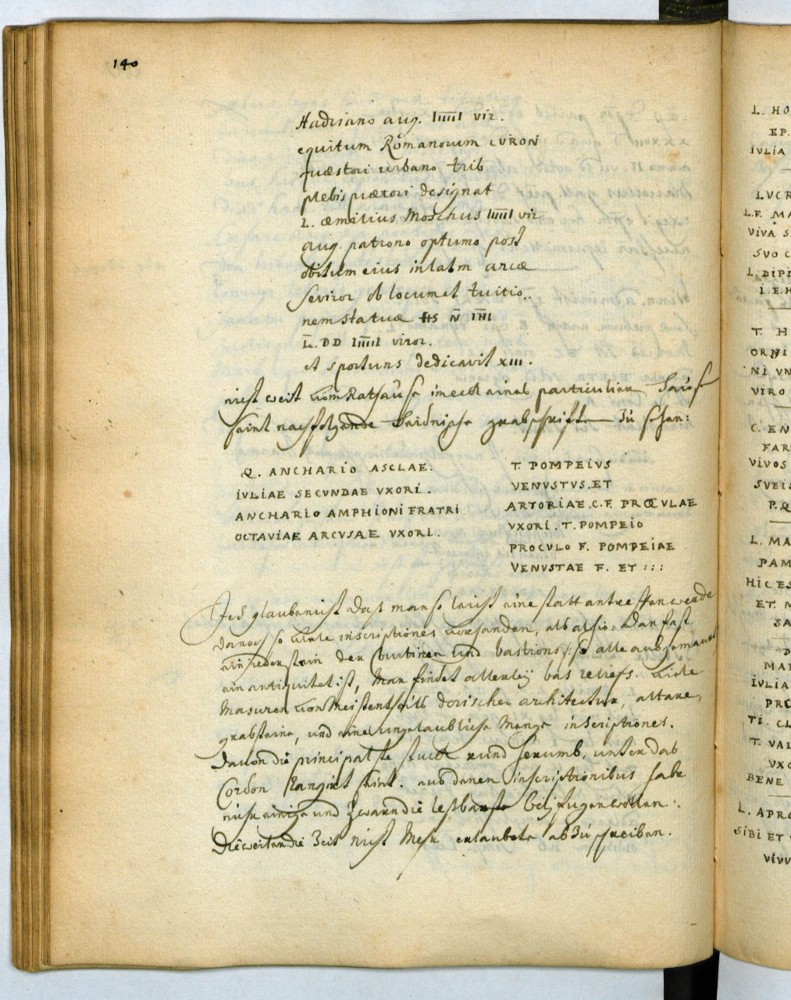 140
Hadriano aug. IIIIII vir.
equitum Romanorum CVRON
quæstori urbano trib
plebis prætori designat
L. æmilius Moschus IIIIII vir
aug. patrono optumo post
obitum eius inlatm arcæ
seviror ob locumet tuitio..
nem statuæ HS N IIII
L. DD IIIIII viror.
et sportuns dedicavit XIII.
nicht weit vom Rathause in eines particuliern Hauß
seint nachfolgende Heidnische grabschrifft zu sehen:
Q. ANCHARIO ASCLAE.
IVLIAE SECVNDAE VXORI.
ANCHARIO AMPHIONI FRATRI
OCTAVIAE ARCVSAE VXORI.
T. POMPEIVS
VENVSTVS. ET
ARTORIAE. C. F. PROCVLAE
VXORI. T. POMPEIO
PROCVLO F. POMPEIAE
VENVSTAE F. ET :::
Ich glaube nicht das man so leicht eine statt antreffen werde
darinen so viele inscriptiones vorhanden, als alhie: dan fast
ein jeder stein der und bastions, so alle
ein antiquitet ist, Man findet allerley bas reliefs. viele
Masuren von meistentheills dorischer architectur, altare,
grabsteine, und eine unglaubliche Menge inscriptiones.
davon die principalste stucke rund herumb, unter das
Cordon Rangirt sint. aus denen inscriptionibus habe
nuhr einige und zwarn die leßbarste beyfugen wollen:
Dieweilen die Zeit nicht Mehr erlaubete abzuschreiben.
L. HO
EP.
IVLIA
LVCR
L.F. MA
VIVA S
SVO C
L. DIPI
I. E. H
T. H
ORNI
NI VN
VIRO
C. EN
FAR
VIVOS
SVEIS
P. Q
L. MA
PAM
HIC ES
ET. M
SA
D
MAR
IVLIA
PRO
TI. CL
T. VAL
VXO
BENE
L. APRO
SIBI ET
VIVV